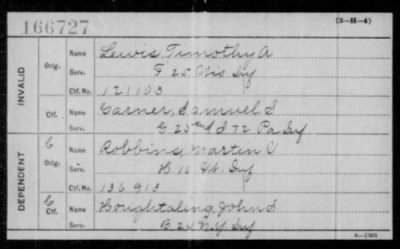 166727
(3-H-4)
INVALID
Orig. Name Lewis, Timothy A
Serv. F 25 Wis Inf
Ctf. No. 121103
Ctf. Name Garner, Samuel S
Serv. G. 23 & D 72 Pa Inf
DEPENDENT
C Orig. Name Robbins, Martin V
Serv. H. 16 Inf
Ctf. No. 136913
C Ctf. Name Houghtaling, John S
Serv. B 24 N.Y. Inf